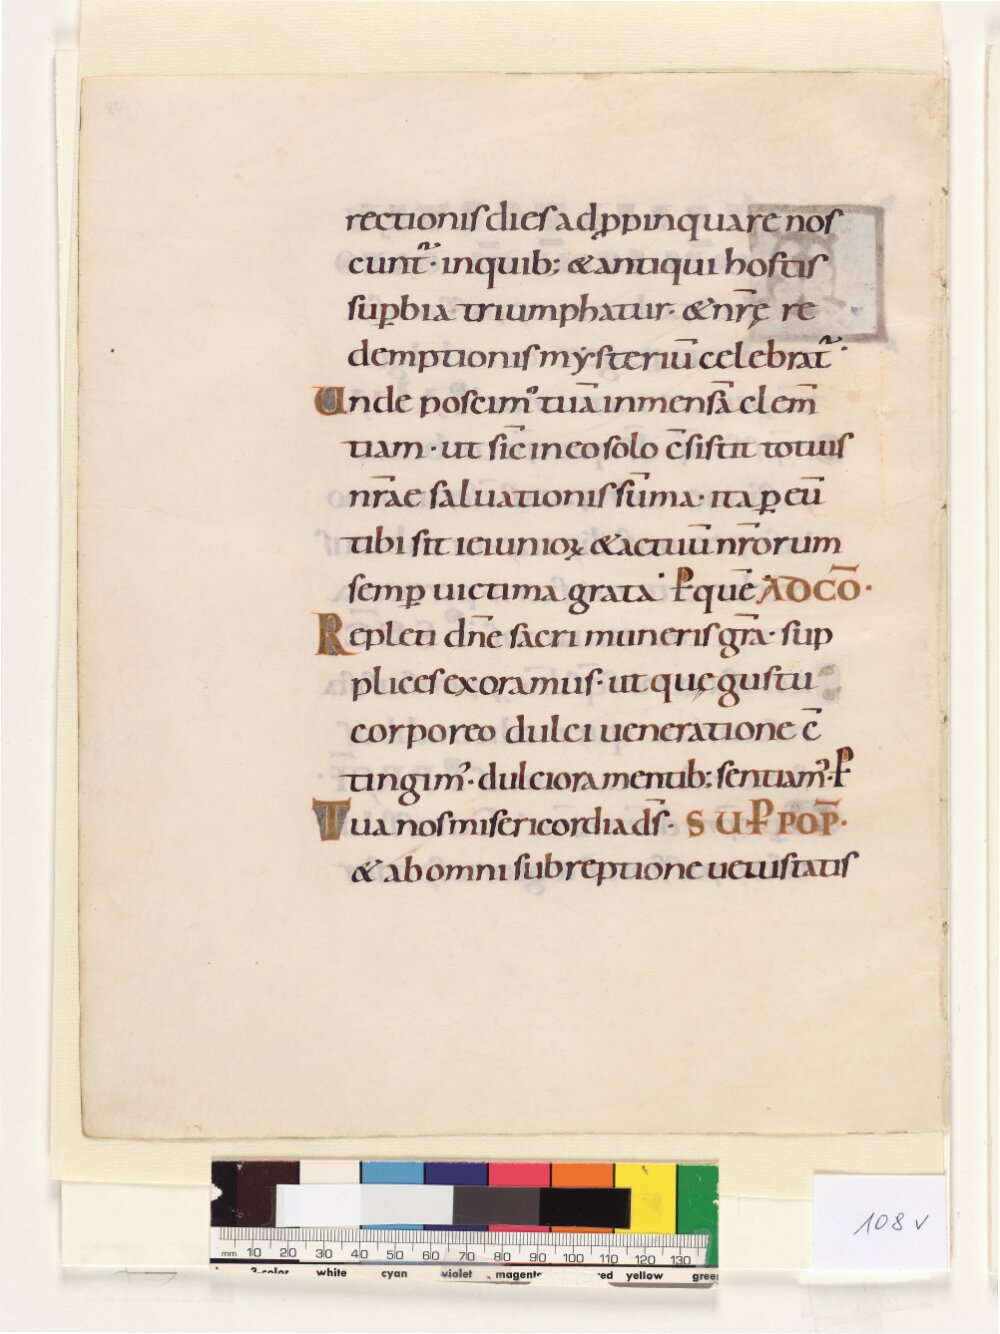 rectionis dies adꝓpinquare nos
cunt᷑· inquib; &antiqui hostis
suꝑbia triumphatur· &nr̄ę re
demptionis mẏsteriū celebrat᷑·
Unde poscimꝰ tuā inmensā clem̄
tiam· ut sic̄ in eo solo c̄sistit totius
nr̄ae saluationis sūma· ita ꝑ eū
tibi sit ieiunioꝝ &actuū nr̄orum
semꝑ uictima grata· P̵ quē AD CŌ·
Repleti dn̄e sacri muneris gr̄a· sup
plices exoramus· ut quę gustu
corporeo dulci ueneratione c̄
tingimꝰ· dulciora mentib; sentiamꝰ· P̵
Tua nos misericordia ds̄· SUP̵ POP̄·
& ab omni subreptione uetustatis
108 v
mm 10 20 30 40 50 60 70 80 90 100 110 120 130
3-color white cyan violet magenta red yellow green